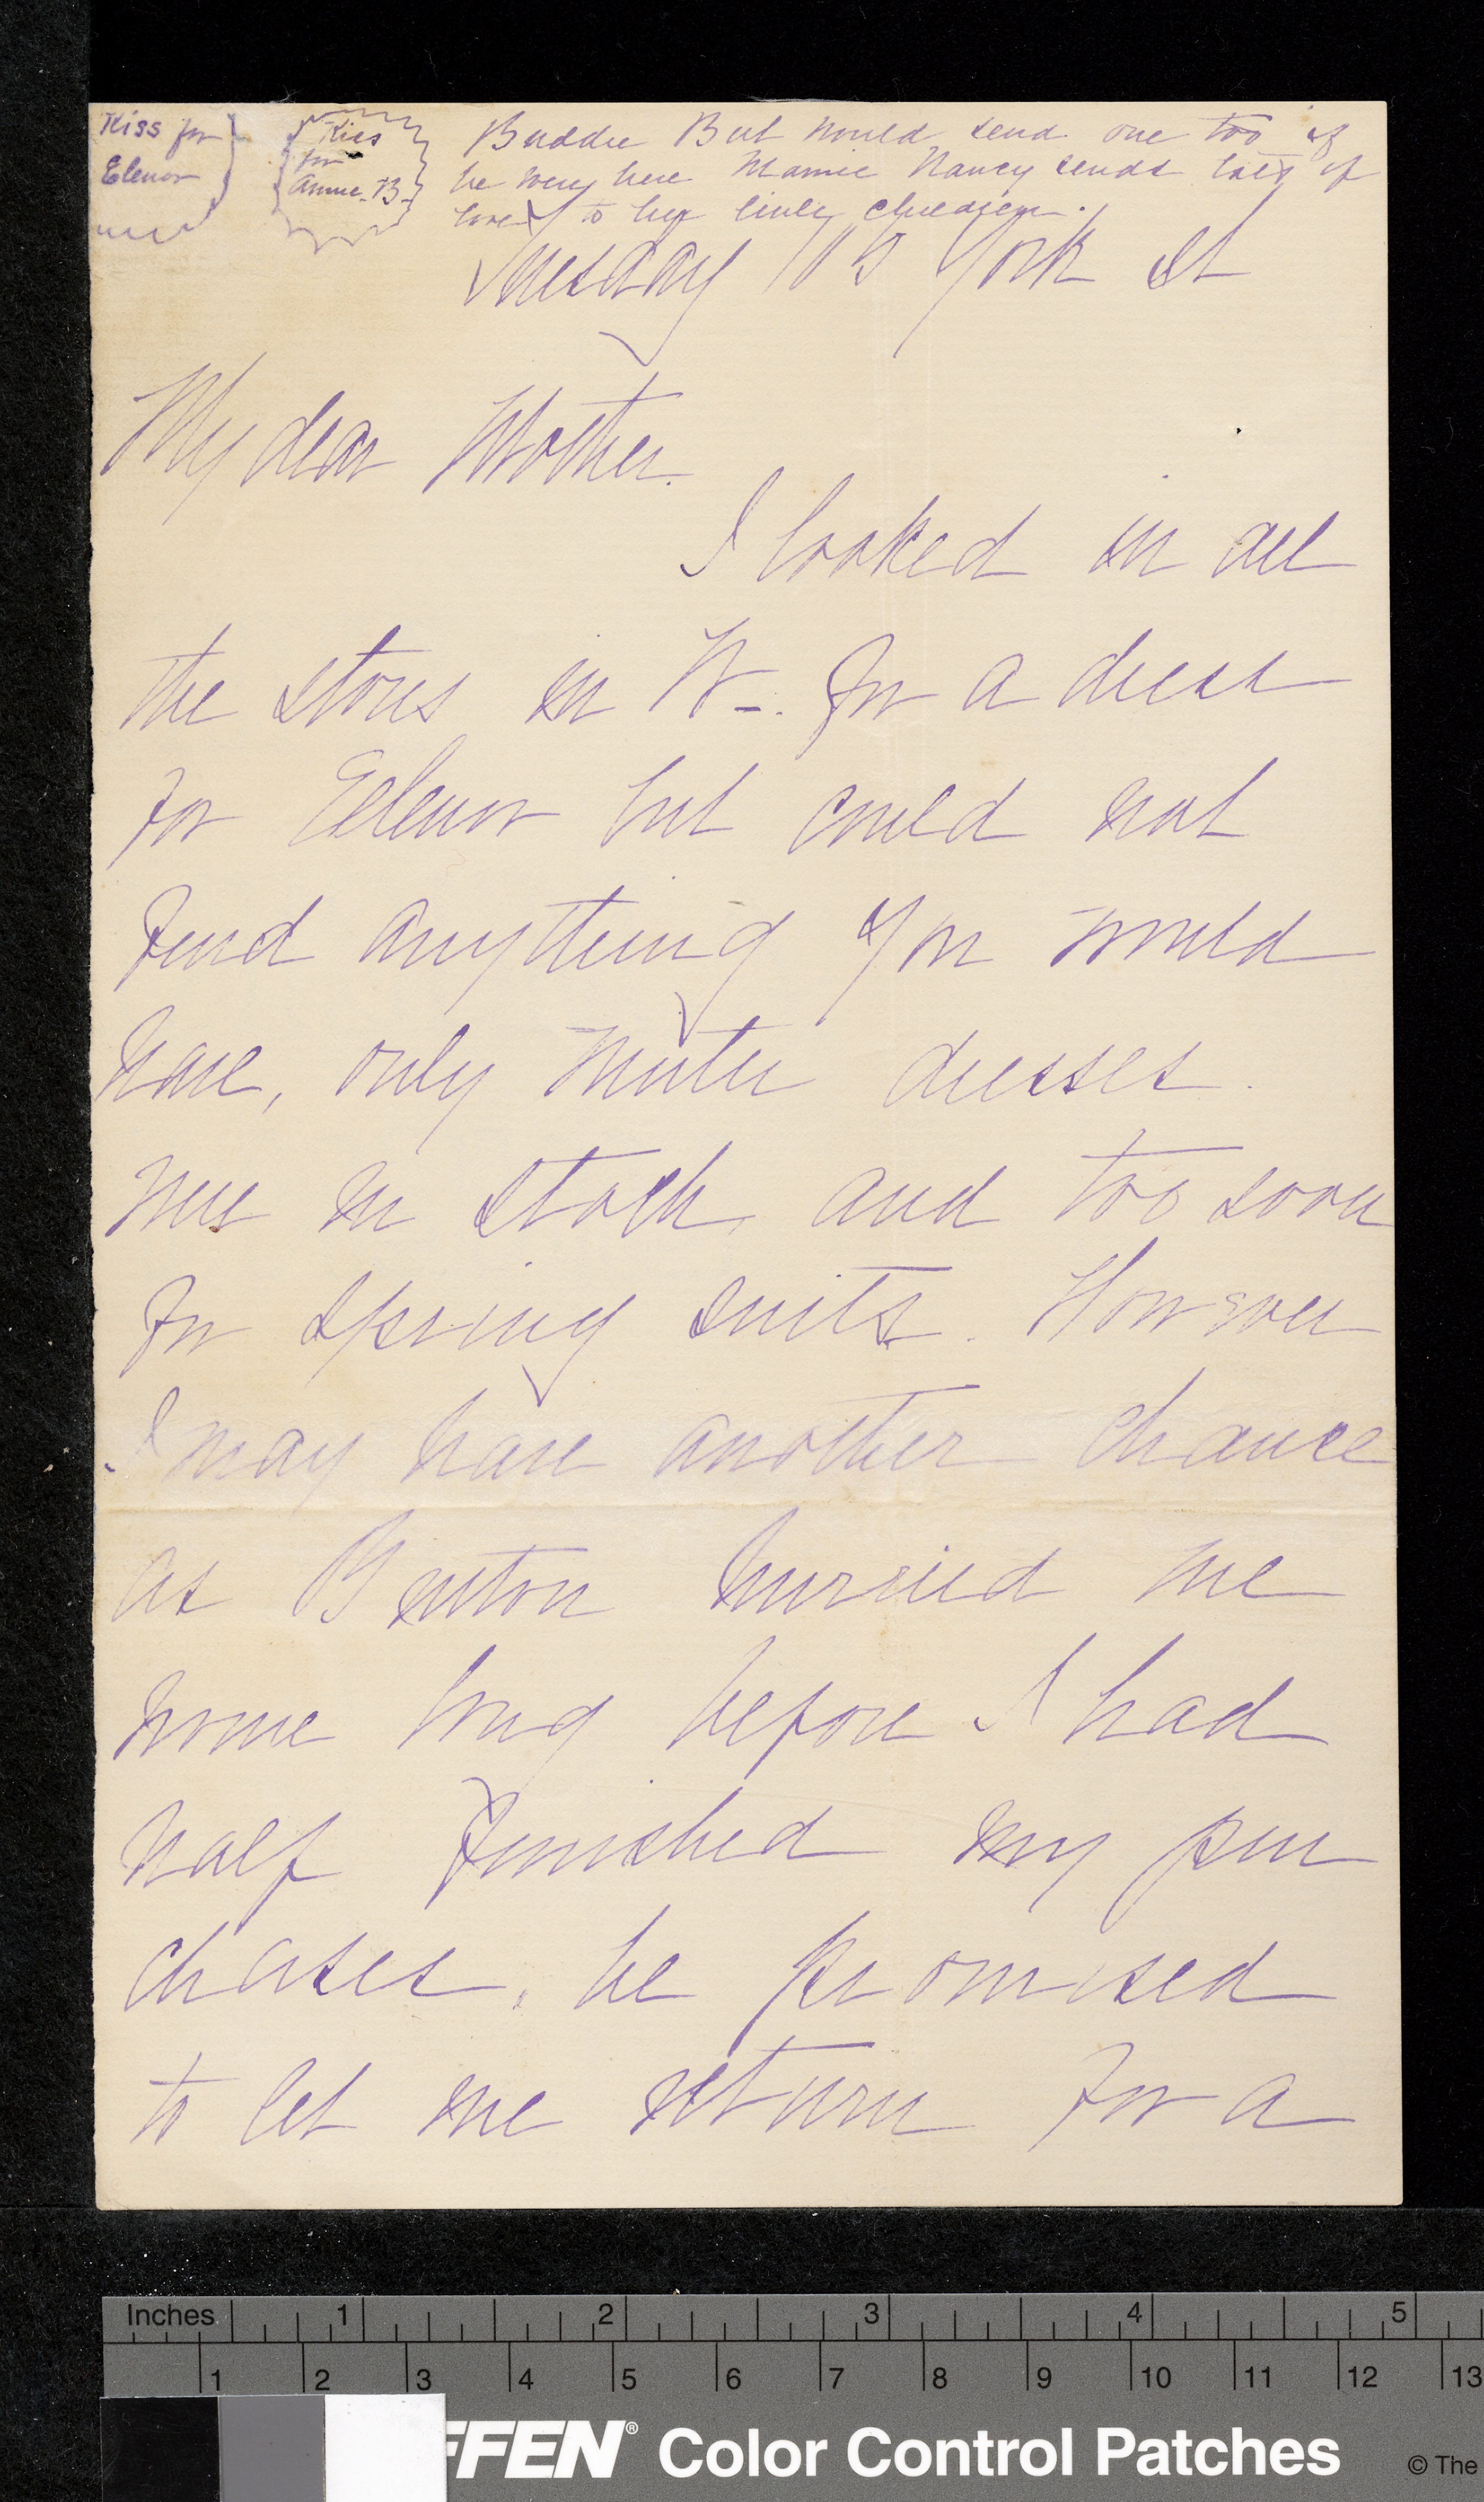 Kiss for
Elenor
Kiss
for
Annie. B.
Buddie But would send one too if
he were here Mamie Nancy sends lots of
love to her little children.
Tuesday 115 York St
My dear Mother.
I looked in all
the stores in N-. for a dress
for Eelenor but could not
find anything you would
have, only winter dresses.
were in stock, and too soon
for spring suits. However
I may have another chance
as Benton hurried me
home long before I had
half finished my pur
chases, he promised
to let me return for a
Inches 1 2 3 4 5
1 2 3 4 5 6 7 8 9 10 11 12 13
FFEN® Color Control Patches © The